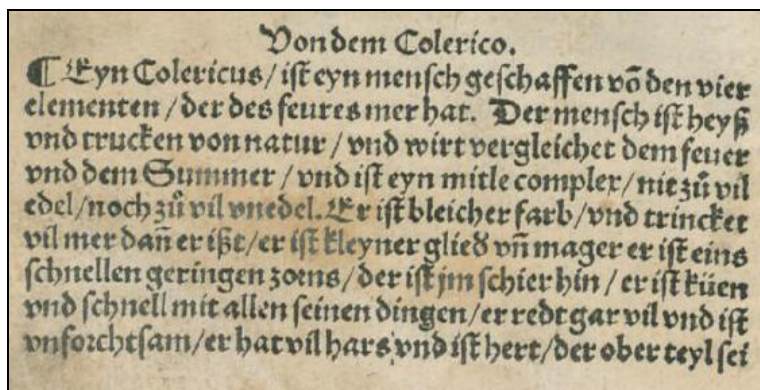 Von dem Colerico.
¶ Eyn Colericus / iſt eyn menſch geſchaffen võ den vier
elementen / der des feures mer hat. Der menſch iſt heyß
vnd trucken von natur / vnd wirt vergleichet dem feuer
vnd dem Summer / vnd iſt eyn mitle complex / nit zů vil
edel / noch zů vil vnedel. Er iſt bleicher farb / vnd trincket
vil mer dañ er ißt / er iſt kleyner glied vñ mager er iſt eins
ſchnellen geringen zorns / der iſt jm ſchier hin / er iſt küen
vnd ſchnell mit allen ſeinen dingen / er redt gar vil vnd iſt
vnforchtſam / er hat vil hars vnd iſt hert / der ober teyl ſei